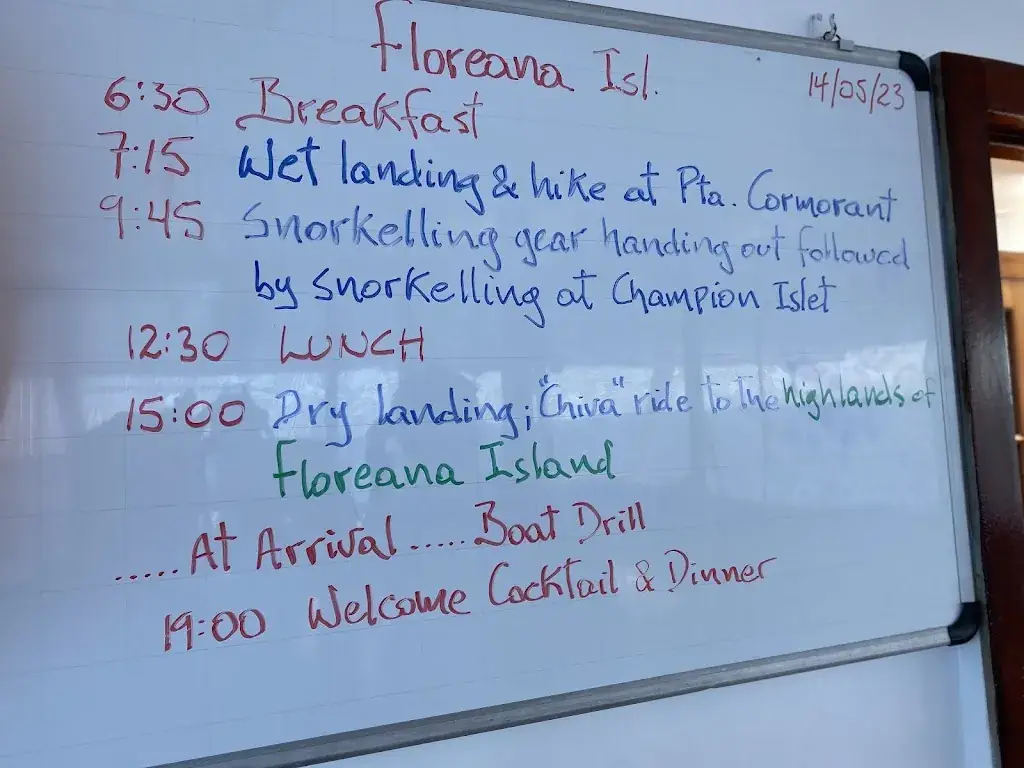 Floreana Isl.
14/05/23
6:30 Breakfast
7:15 Wet landing & hike at Pta. Cormorant
9:45 Snorkelling gear handing out followed
by snorkelling at Champion Islet
12:30 LUNCH
15:00 Dry landing; "Chiva" ride to the highlands of
Floreana Island
..... At Arrival ..... Boat Drill
19:00 Welcome Cocktail & Dinner